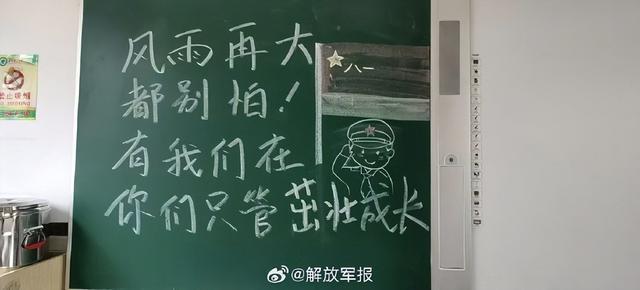 风雨再大
都别怕！
有我们在
你们只管茁壮成长
八一
@解放军报